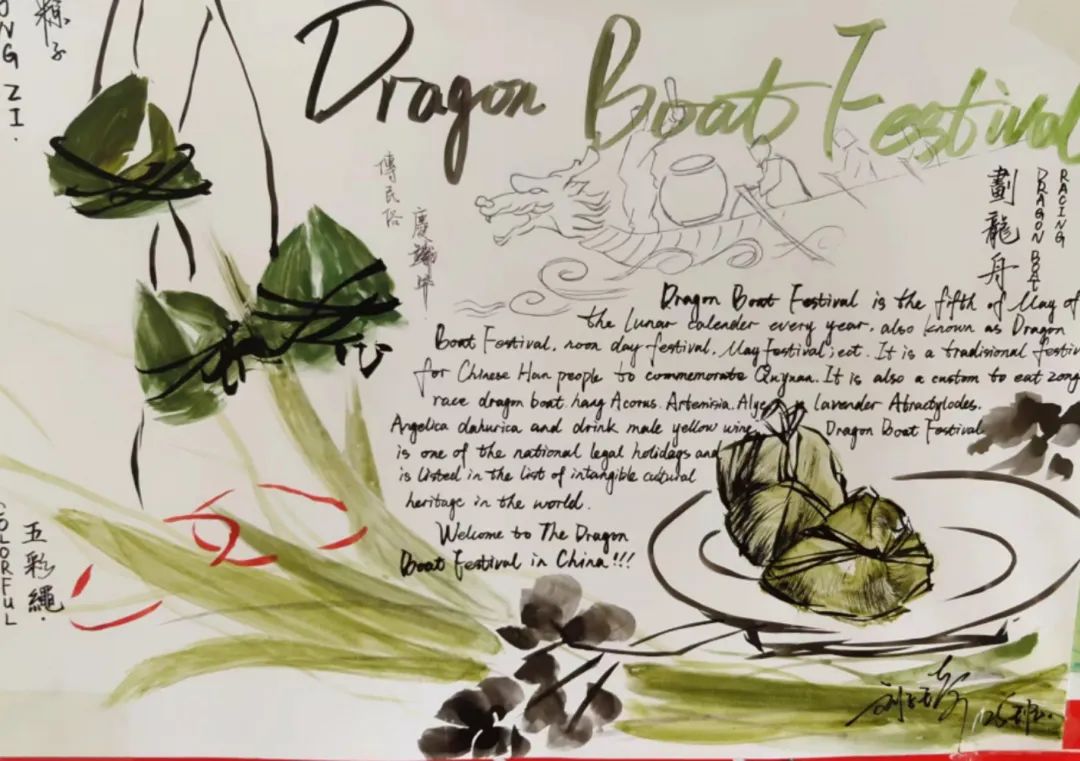 粽子
NG ZI.
Dragon Boat Festival
傳民俗
慶端午
劃龍舟
RACING
DRAGON BOAT
Dragon Boat Festival is the fifth of May of
the lunar calender every year, also known as Dragon
Boat Festival, noon day festival, May Festival, ect. It is a tradisional festiv
for Chinese Han people to commemorate Quyuan. It is also a custom to eat zong
race dragon boat, hang Acorus, Artemisia, Alge lavender Atractylodes,
Angelica dahurica and drink male yellow wine. Dragon Boat Festival
is one of the national legal holidays and
is listed in the list of intangible cultural
heritage in the world.
Welcome to The Dragon
Boat Festival in China!!!
五彩繩.
COLORFUL